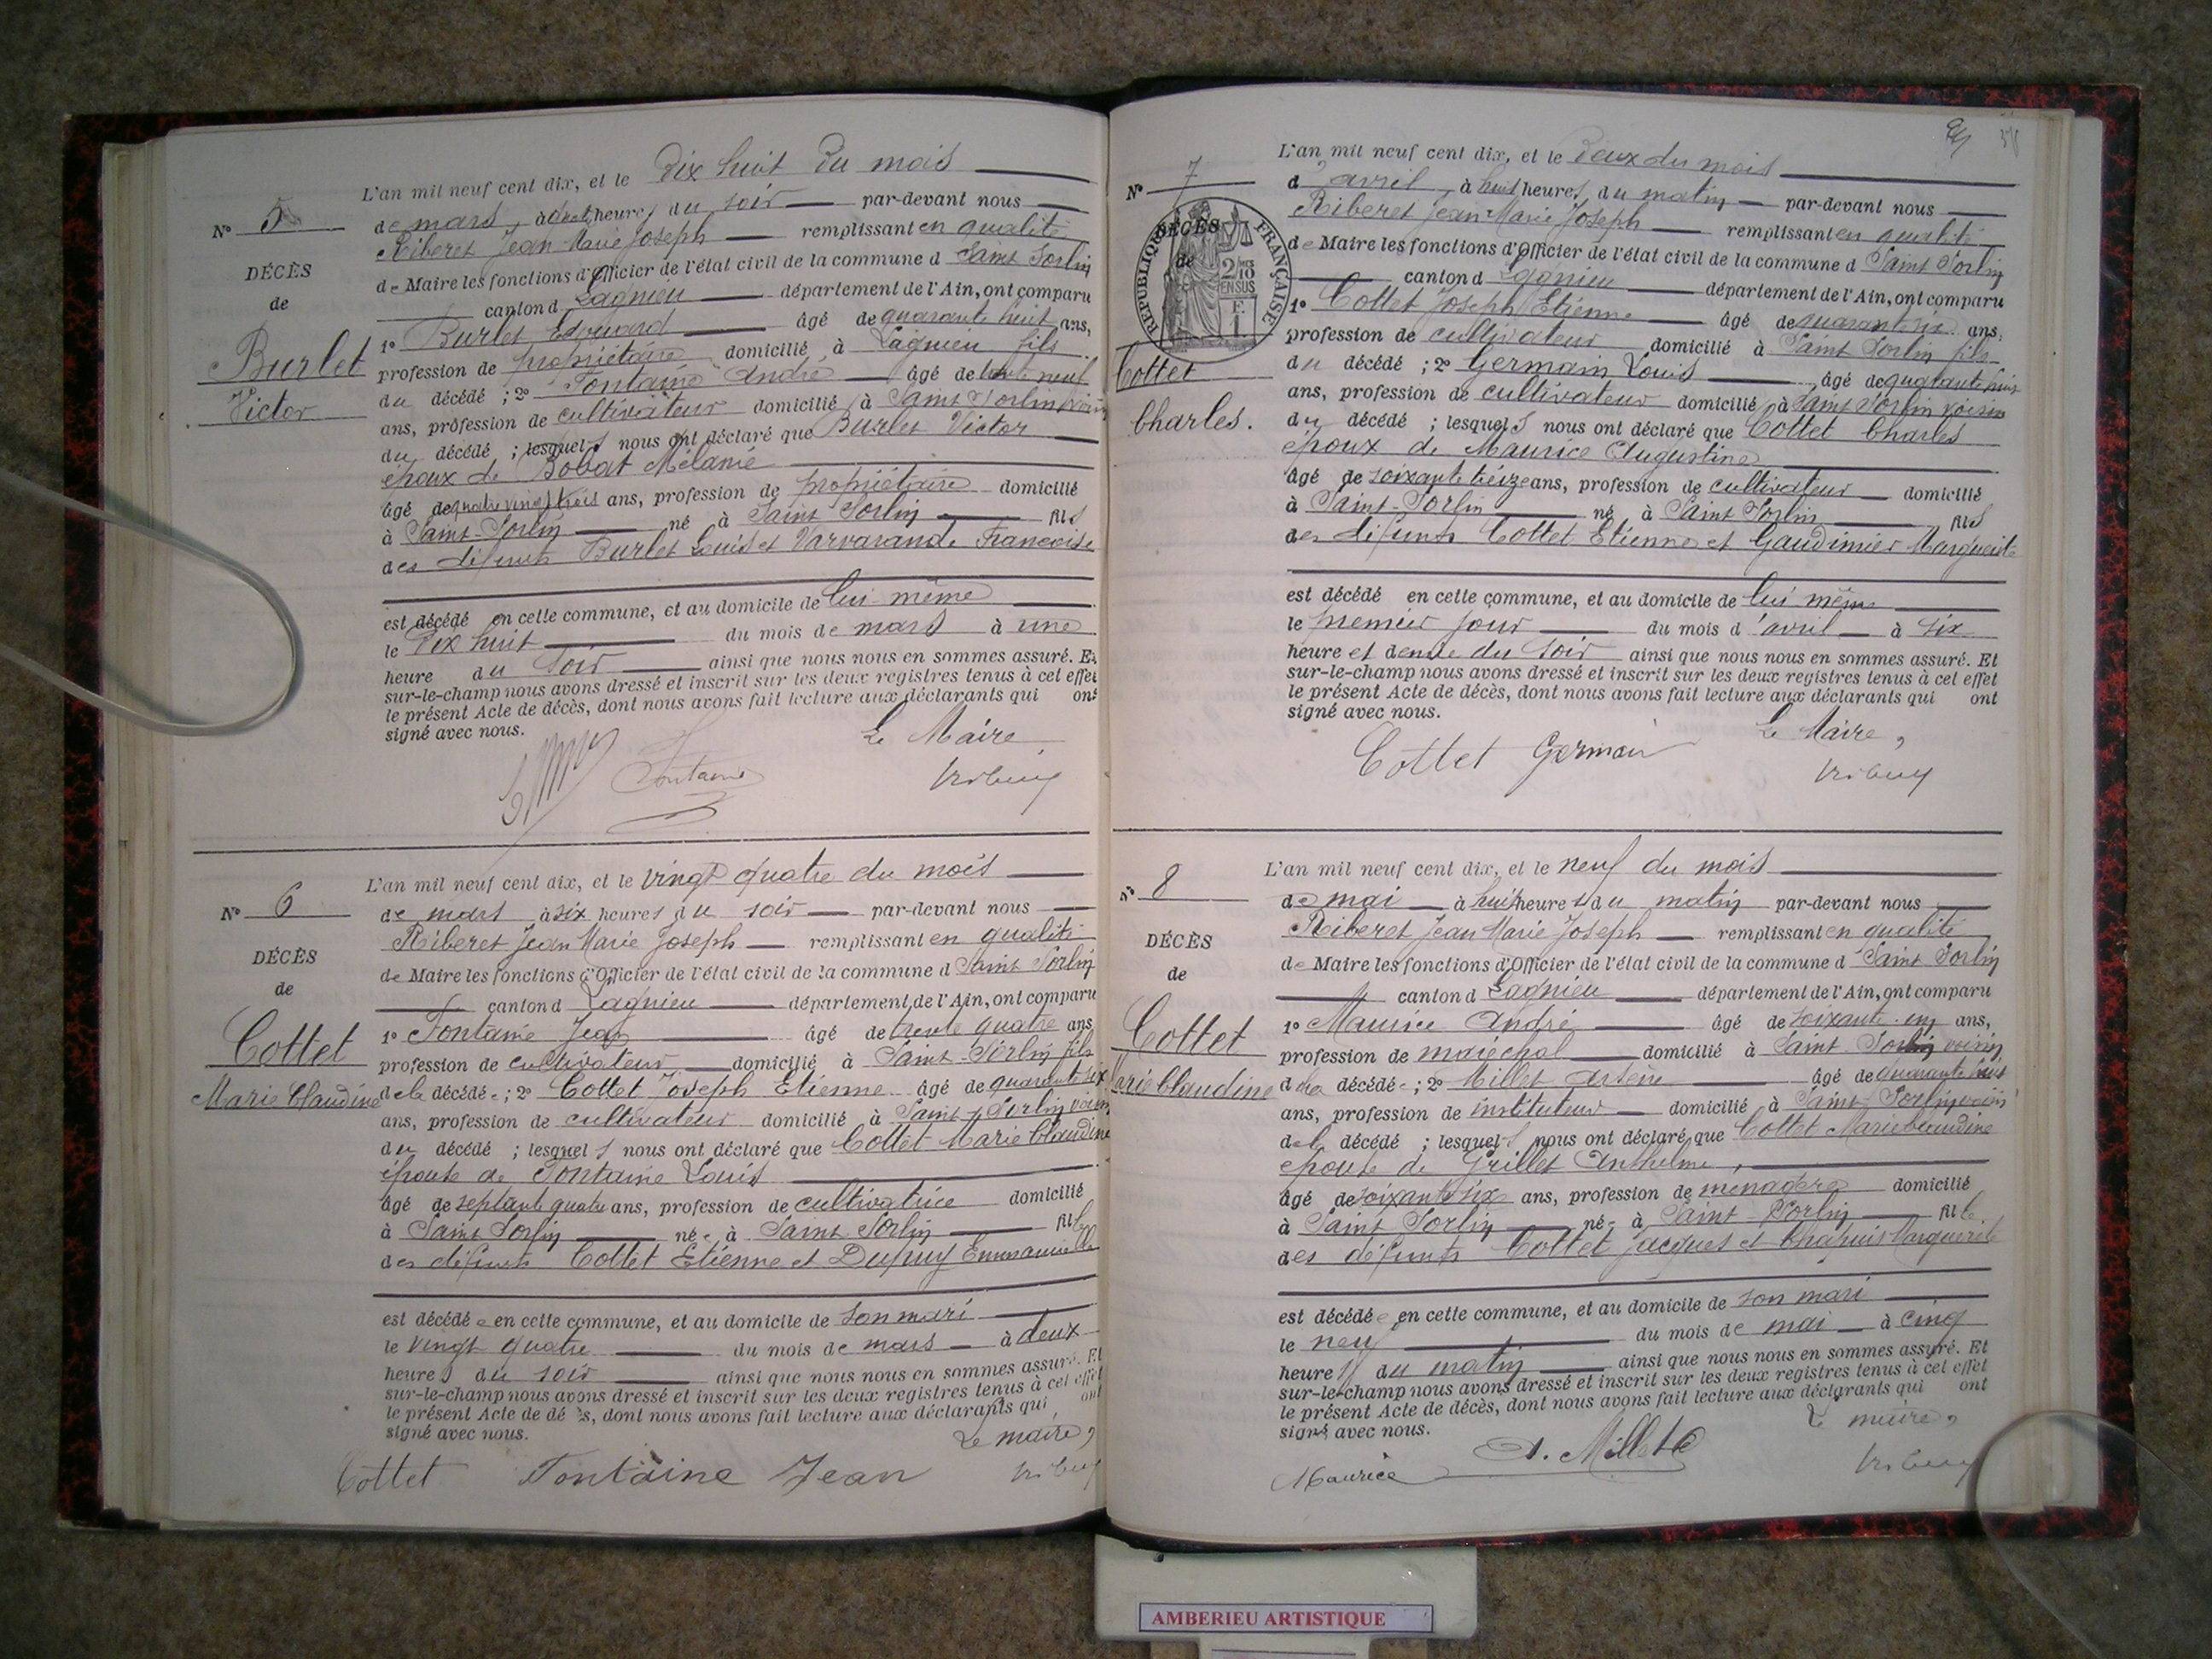 L'an mil neuf cent dix, et le dix huit du mois
de mars, à heures du soir par-devant nous
Riberet Jean Marie Joseph remplissant en qualité
de Maire les fonctions d'Officier de l'état civil de la commune d Saint Sorlin
canton d Lagnieu département de l'Ain, ont comparu
1° Burlet Edouard âgé de quarante huit ans,
profession de propriétaire domicilié à Lagnieu fils
du décédé ; 2° Fontaine André âgé de neuf
ans, profession de cultivateur domicilié à Saint Sorlin voisin
du décédé ; lesquels nous ont déclaré que Burlet Victor
époux de Bobat Mélanie
âgé de quatre vingt trois ans, profession de propriétaire domicilié
à Saint-Sorlin né à Saint Sorlin fils
des défunts Burlet Louis et Varvarande Francoise
est décédé en cette commune, et au domicile de lui même
le Dix huit du mois de mars à une
heure du soir ainsi que nous nous en sommes assuré. Et
sur-le-champ nous avons dressé et inscrit sur les deux registres tenus à cet effet
le présent Acte de décès, dont nous avons fait lecture aux déclarants qui ont
signé avec nous.
Le Maire
Fontaine
N° 5
DÉCÈS
de
Burlet
Victor
L'an mil neuf cent dix, et le vingt quatre du mois
de mars à six heures du soir par-devant nous
Riberet Jean Marie Joseph remplissant en qualité
de Maire les fonctions d'Officier de l'état civil de la commune d Saint Sorlin
canton d Lagnieu département de l'Ain, ont comparu
1° Fontaine Jean âgé de trente quatre ans
profession de cultivateur domicilié à Saint-Sorlin fils
de la décédée ; 2° Cottet Joseph Etienne âgé de quarante six
ans, profession de cultivateur domicilié à Saint-Sorlin voisin
du décédé ; lesquels nous ont déclaré que Cottet Marie Claudine
épouse de Fontaine Louis
âgé de septante quatre ans, profession de cultivatrice domicilié
à Saint Sorlin née à Saint Sorlin fille
des défunts Cottet Etienne et Dupuy Emmanuelle
est décédée en cette commune, et au domicile de son mari
le vingt quatre du mois de mars à deux
heures du soir ainsi que nous nous en sommes assuré. Et
sur-le-champ nous avons dressé et inscrit sur les deux registres tenus à cet effet
le présent Acte de dé s, dont nous avons fait lecture aux déclarants qui ont
signé avec nous.
Le maire,
Cottet Fontaine Jean
N° 6
DÉCÈS
de
Cottet
Marie Claudine
L'an mil neuf cent dix, et le Deux du mois
d'avril, à huit heures du matin par-devant nous
Riberet Jean Marie Joseph remplissant en qualité
de Maire les fonctions d'Officier de l'état civil de la commune d Saint Sorlin
canton d Lagnieu département de l'Ain, ont comparu
1° Cottet Joseph Etienne âgé de quarante six ans.
profession de cultivateur domicilié à Saint Sorlin fils
du décédé ; 2° Germain Louis âgé de quarante huit
ans, profession de cultivateur domicilié à Saint Sorlin voisin
du décédé ; lesquels nous ont déclaré que Cottet Charles
époux de Maurice Augustine
âgé de soixante treize ans, profession de cultivateur domicilié
à Saint-Sorlin né à Saint Sorlin fils
des défunts Cottet Etienne et Gaudimier Marguerite
est décédé en cette commune, et au domicile de lui même
le premier jour du mois d'avril à six
heure et demie du soir ainsi que nous nous en sommes assuré. Et
sur-le-champ nous avons dressé et inscrit sur les deux registres tenus à cet effet
le présent Acte de décès, dont nous avons fait lecture aux déclarants qui ont
signé avec nous.
Le Maire,
Cottet Germain
N° 7
DÉCÈS
de
RÉPUBLIQUE FRANÇAISE
2/10 EN SUS
F.
1
Cottet
Charles.
L'an mil neuf cent dix, et le neuf du mois
de mai à huit heures du matin par-devant nous
Riberet Jean Marie Joseph remplissant en qualité
de Maire les fonctions d'Officier de l'état civil de la commune d Saint Sorlin
canton d Lagnieu département de l'Ain, ont comparu
1° Maurice André âgé de soixante un ans,
profession de maréchal domicilié à Saint-Sorlin voisin
de la décédée ; 2° Millet Arsène âgé de quarante huit
ans, profession de instituteur domicilié à Saint-Sorlin voisin
de la décédé ; lesquels nous ont déclaré que Cottet Marie Claudine
épouse de Grillet Anthelme,
âgé de soixante six ans, profession de ménagère domicilié
à Saint Sorlin née à Saint-Sorlin fille
des défunts Cottet Jacques et Chapuis Marguerite
est décédée en cette commune, et au domicile de son mari
le neuf du mois de mai à cinq
heures du matin ainsi que nous nous en sommes assuré. Et
sur-le-champ nous avons dressé et inscrit sur les deux registres tenus à cet effet
le présent Acte de décès, dont nous avons fait lecture aux déclarants qui ont
signé avec nous.
Le maire,
Maurice A. Millet
N° 8
DÉCÈS
de
Cottet
Marie Claudine
AMBERIEU ARTISTIQUE